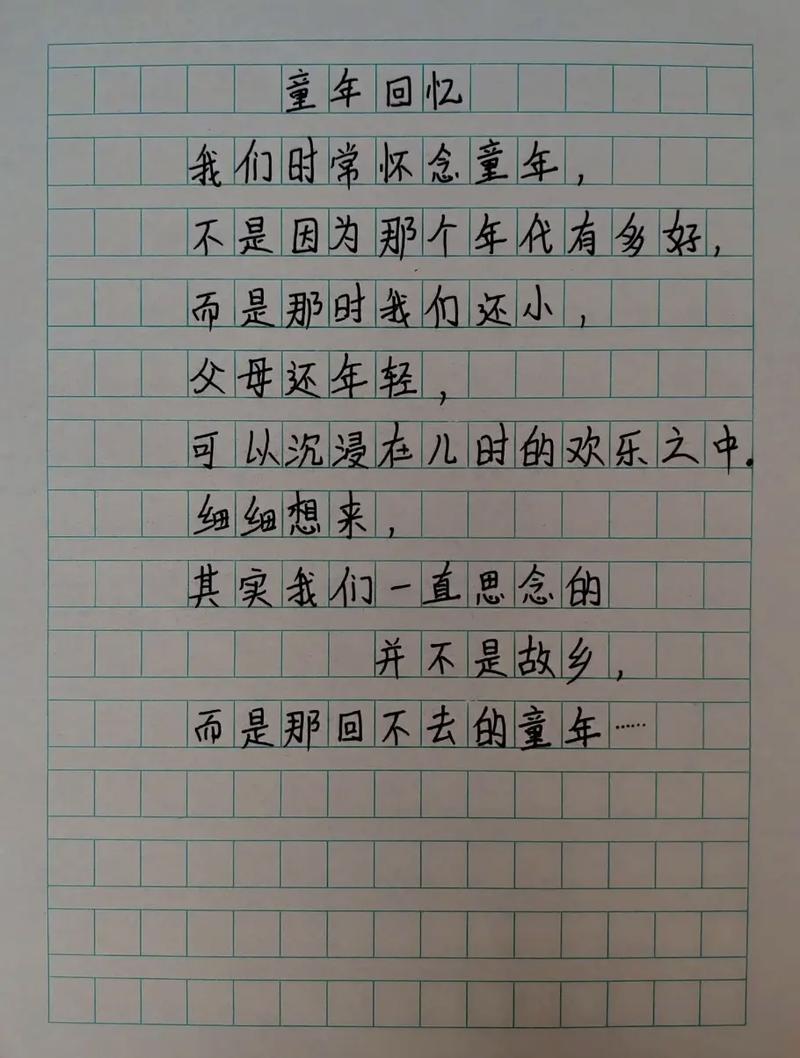 童年回忆
我们时常怀念童年，
不是因为那个年代有多好，
而是那时我们还小，
父母还年轻，
可以沉浸在儿时的欢乐之中.
细细想来，
其实我们一直思念的
并不是故乡，
而是那回不去的童年……